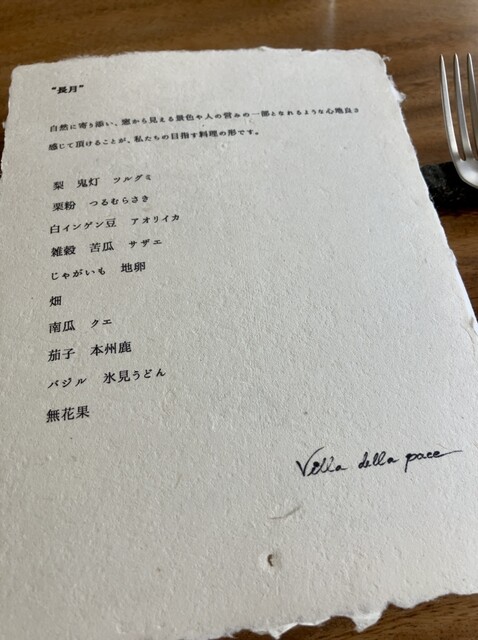 "長月"
自然に寄り添い、窓から見える景色や人の営みの一部となれるような心地良さ
感じて頂けることが、私たちの目指す料理の形です。
梨 鬼灯 ツルグミ
栗粉 つるむらさき
白インゲン豆 アオリイカ
雑穀 苦瓜 サザエ
じゃがいも 地卵
畑
南瓜 クエ
茄子 本州鹿
バジル 氷見うどん
無花果
Villa della pace